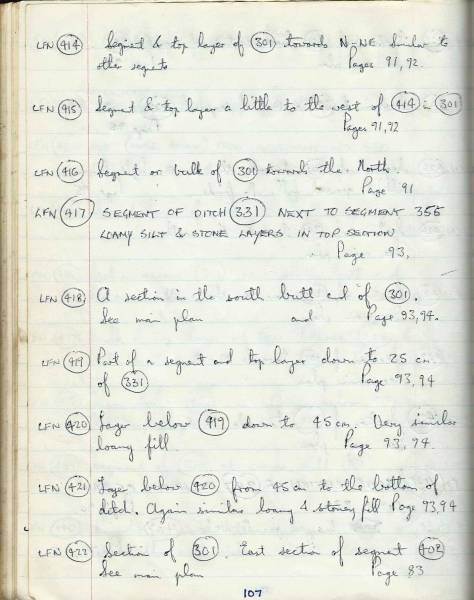 LFN 414 Segment & top layer of 301 towards N-NE Similar to
other segments Pages 91, 92.
LFN 415 Segment & top layer a little to the west of 414 in 301
Pages 91,92
LFN 416 Segment or bulk of 301 towards the North.
Page 91
LFN 417 SEGMENT OF DITCH 331 NEXT TO SEGMENT 355
LOAMY SILT & STONE LAYERS IN TOP SECTION
Page 93,
LFN 418 A section in the south butt end of 301.
See main plan and Page 93,94.
LFN 419 Part of a segment and top layer down to 25 cm
of 331 Page 93,94
LFN 420 Layer below 419 down to 45 cm. Very similar
loamy fill Page 93, 94
LFN 421 Layer below 420 from 45 cm to the bottom of
ditch. Again similar loamy & stoney fill Page 93,94
LFN 422 Section of 301. East section of segment 402
See main plan Page 83
107